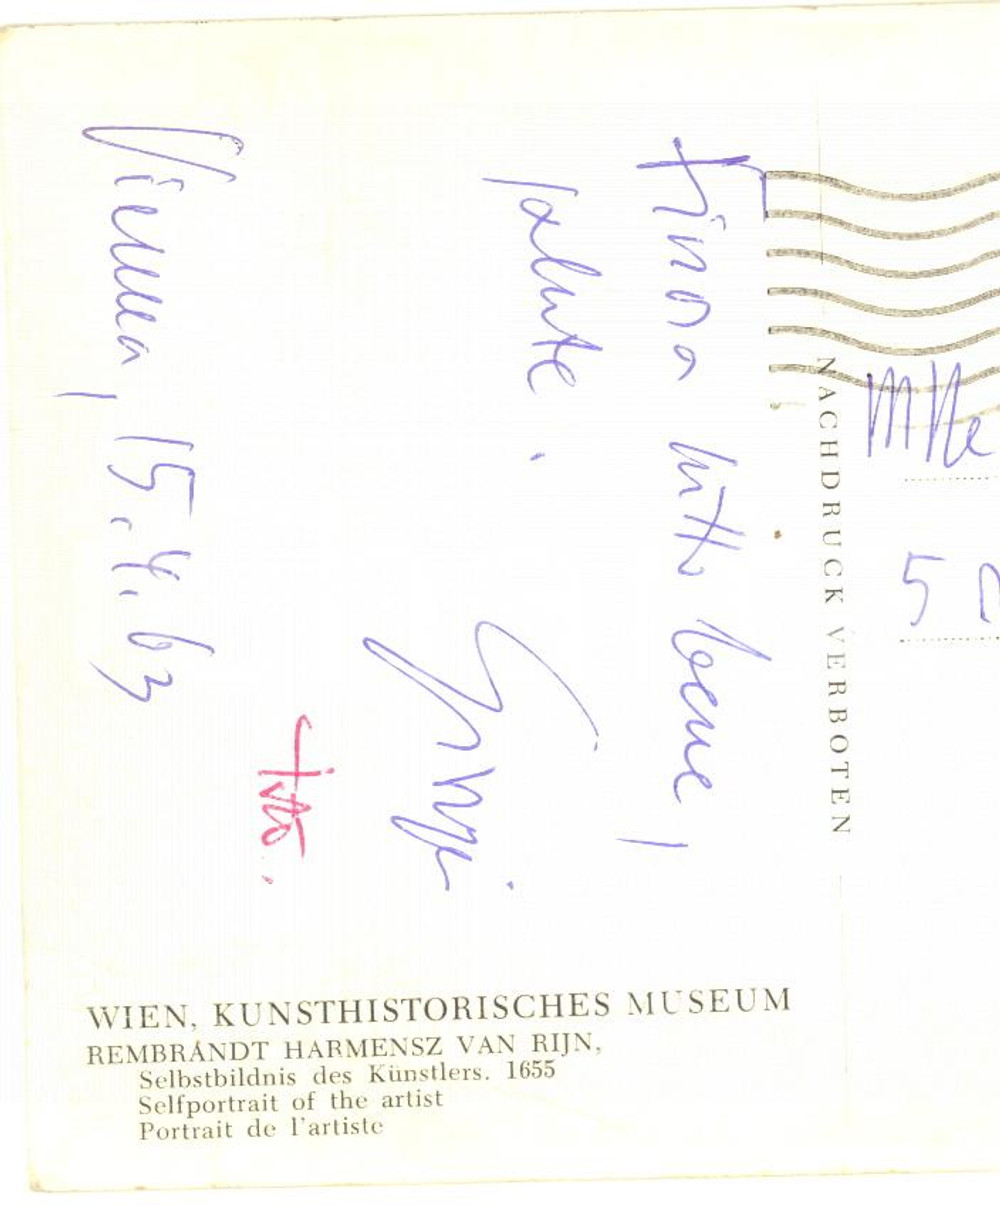 Finora tutto bene,
salute.
Vienna, 15.4.63
NACHDRUCK VERBOTEN
Mlle
5
WIEN, KUNSTHISTORISCHES MUSEUM
REMBRANDT HARMENSZ VAN RIJN,
Selbstbildnis des Künstlers. 1655
Selfportrait of the artist
Portrait de l'artiste